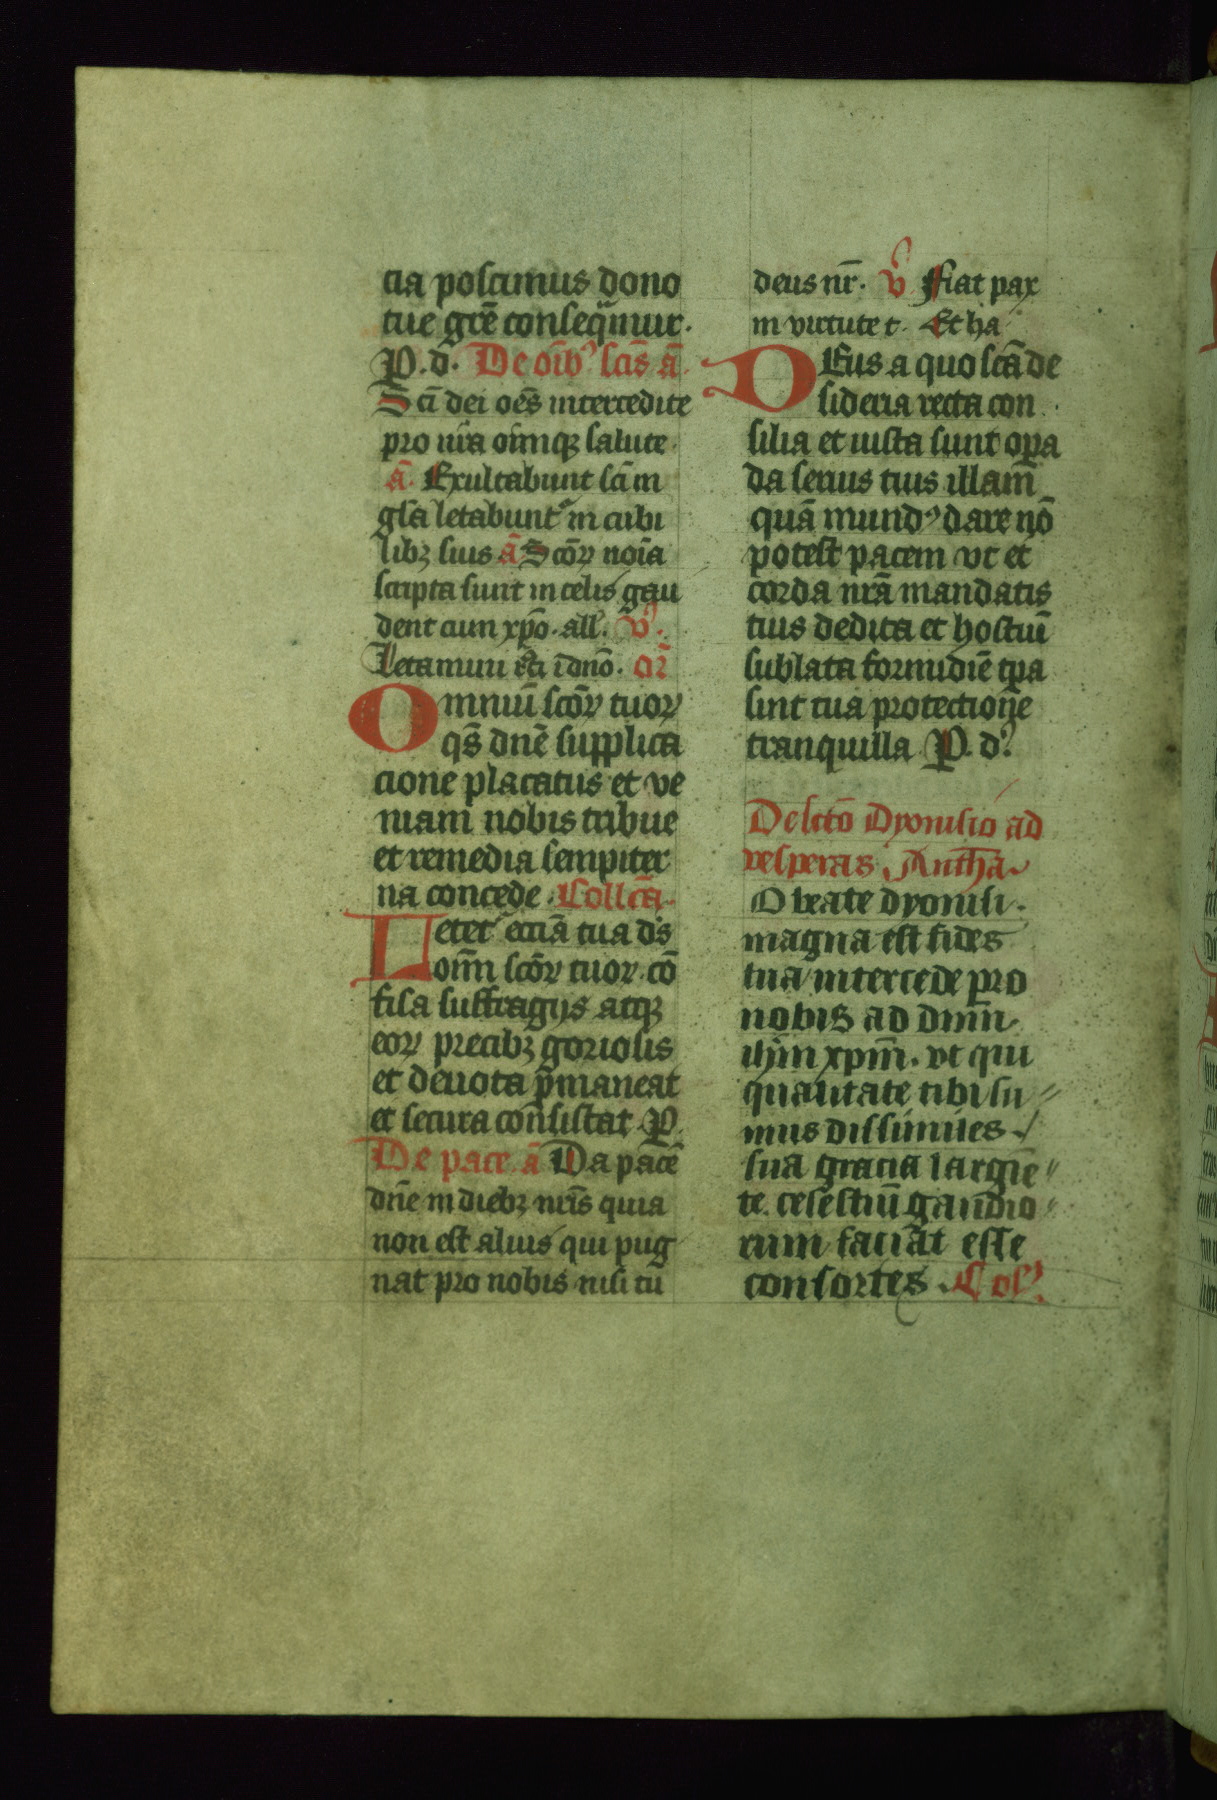 cia poscimus dono
tue grē consequamur.
P. d. De oībꝰ scīs ā.
Scī dei oēs intercedite
pro nr̄a oīmqꝫ salute.
ā. Exultabunt scī in
glā letabuntᷣ in cubi
libꝫ suis ā Scōꝝ noīa
scripta sunt in celis gau
dent cum xp̄o. all̄. ꝟ.
Letamini ī dnō. or̄
Omniū scōꝝ tuoꝝ
qs̄ dnē supplica
cione placatus et ve
niam nobis tribue
et remedia sempiter
na concede. Collcā.
Letetᷣ ecciā tua ds̄
oīm scōꝝ tuoꝝ. cō
fisa suffragijs atqꝫ
eoꝝ precibꝫ goriosis
et deuota ꝑmaneat
et secura consistat P.
De pace. ā Da pacē
dnē in diebꝫ nr̄is quia
non est alius qui pug
nat pro nobis nisi tu
deus nr̄. ꝟ Fiat pax
in virtute t. Et ha
DEus a quo scā de
sideria recta con
silia et iusta sunt oꝑa
da seruis tuis illam
quā mundꝰ dare nō
potest pacem vt et
corda nr̄a mandatis
tuis dedita et hostiū
sublata formidīe tꝑa
sint tua protectione
tranquilla P. dꝰ.
De scto Dyonisio ad
vesperas. Antha
O beate dyonisi.
magna est fides
tua intercede pro
nobis ad dnm̄
ihm̄ xpm̄. vt qui
qualitate tibi su//
mus dissimiles./
sua gracia largiē//
te. celestiū gaudio//
rum faciāt esse
consortes. Colꝰ.